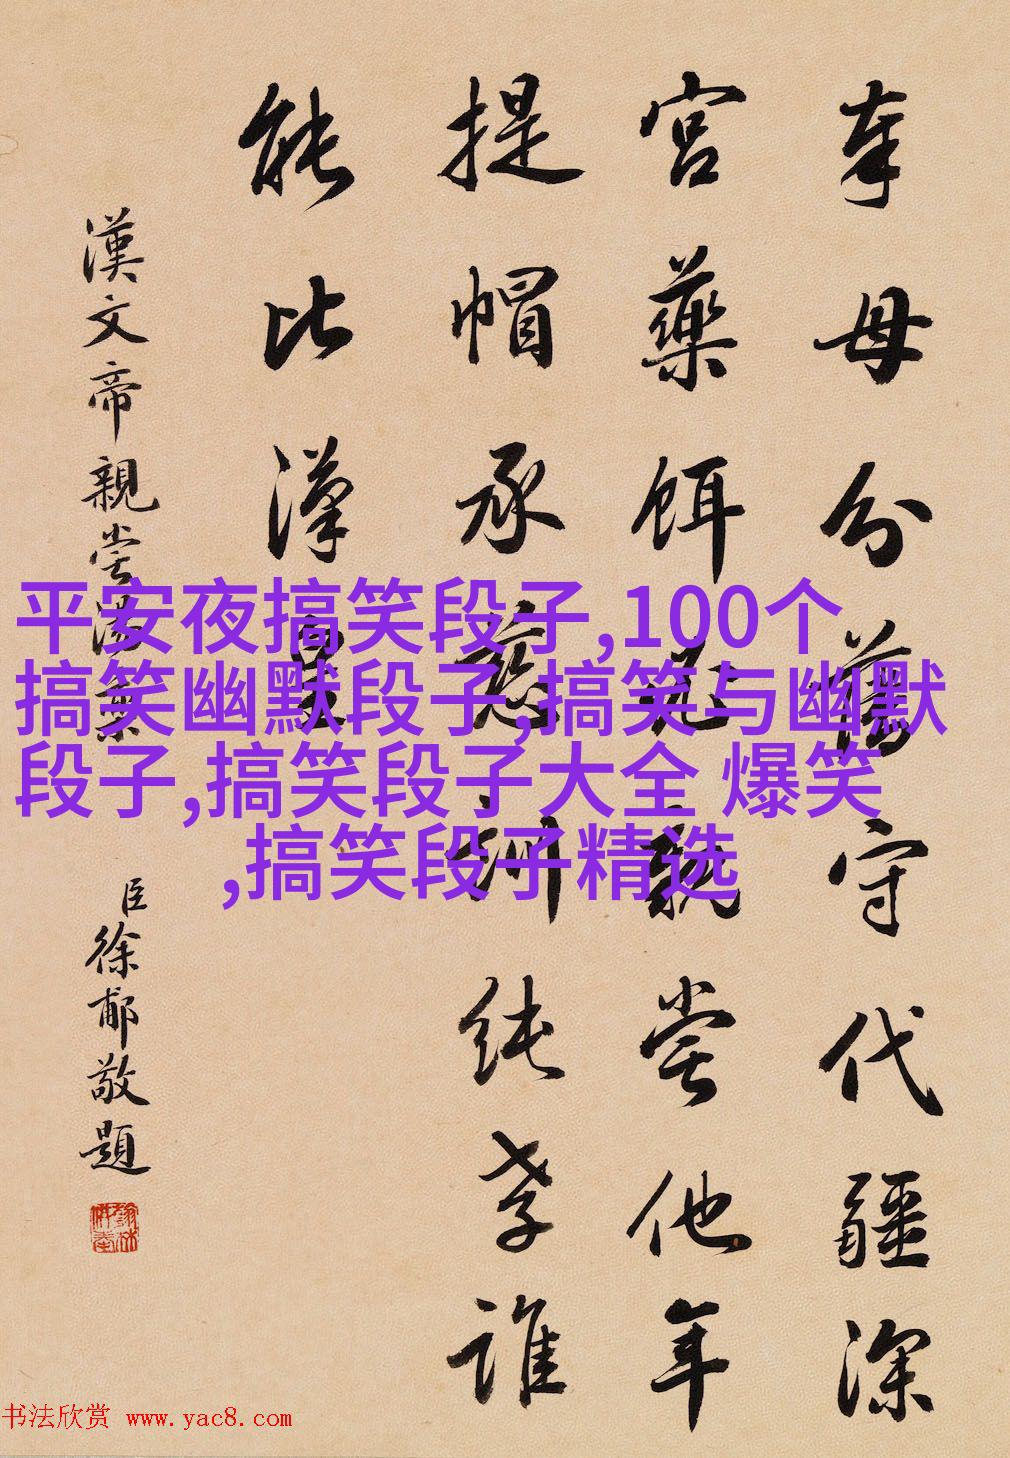 奉母分藩守代疆深
宮藥餌嘗他年
提帽承慈訓純孝誰
能比漢皇
漢文帝親嘗湯藥
臣徐郙敬題
平安夜搞笑段子,100个
搞笑幽默段子,搞笑与幽默
段子,搞笑段子大全 爆笑
,搞笑段子精选
书法欣赏 www.yac8.com